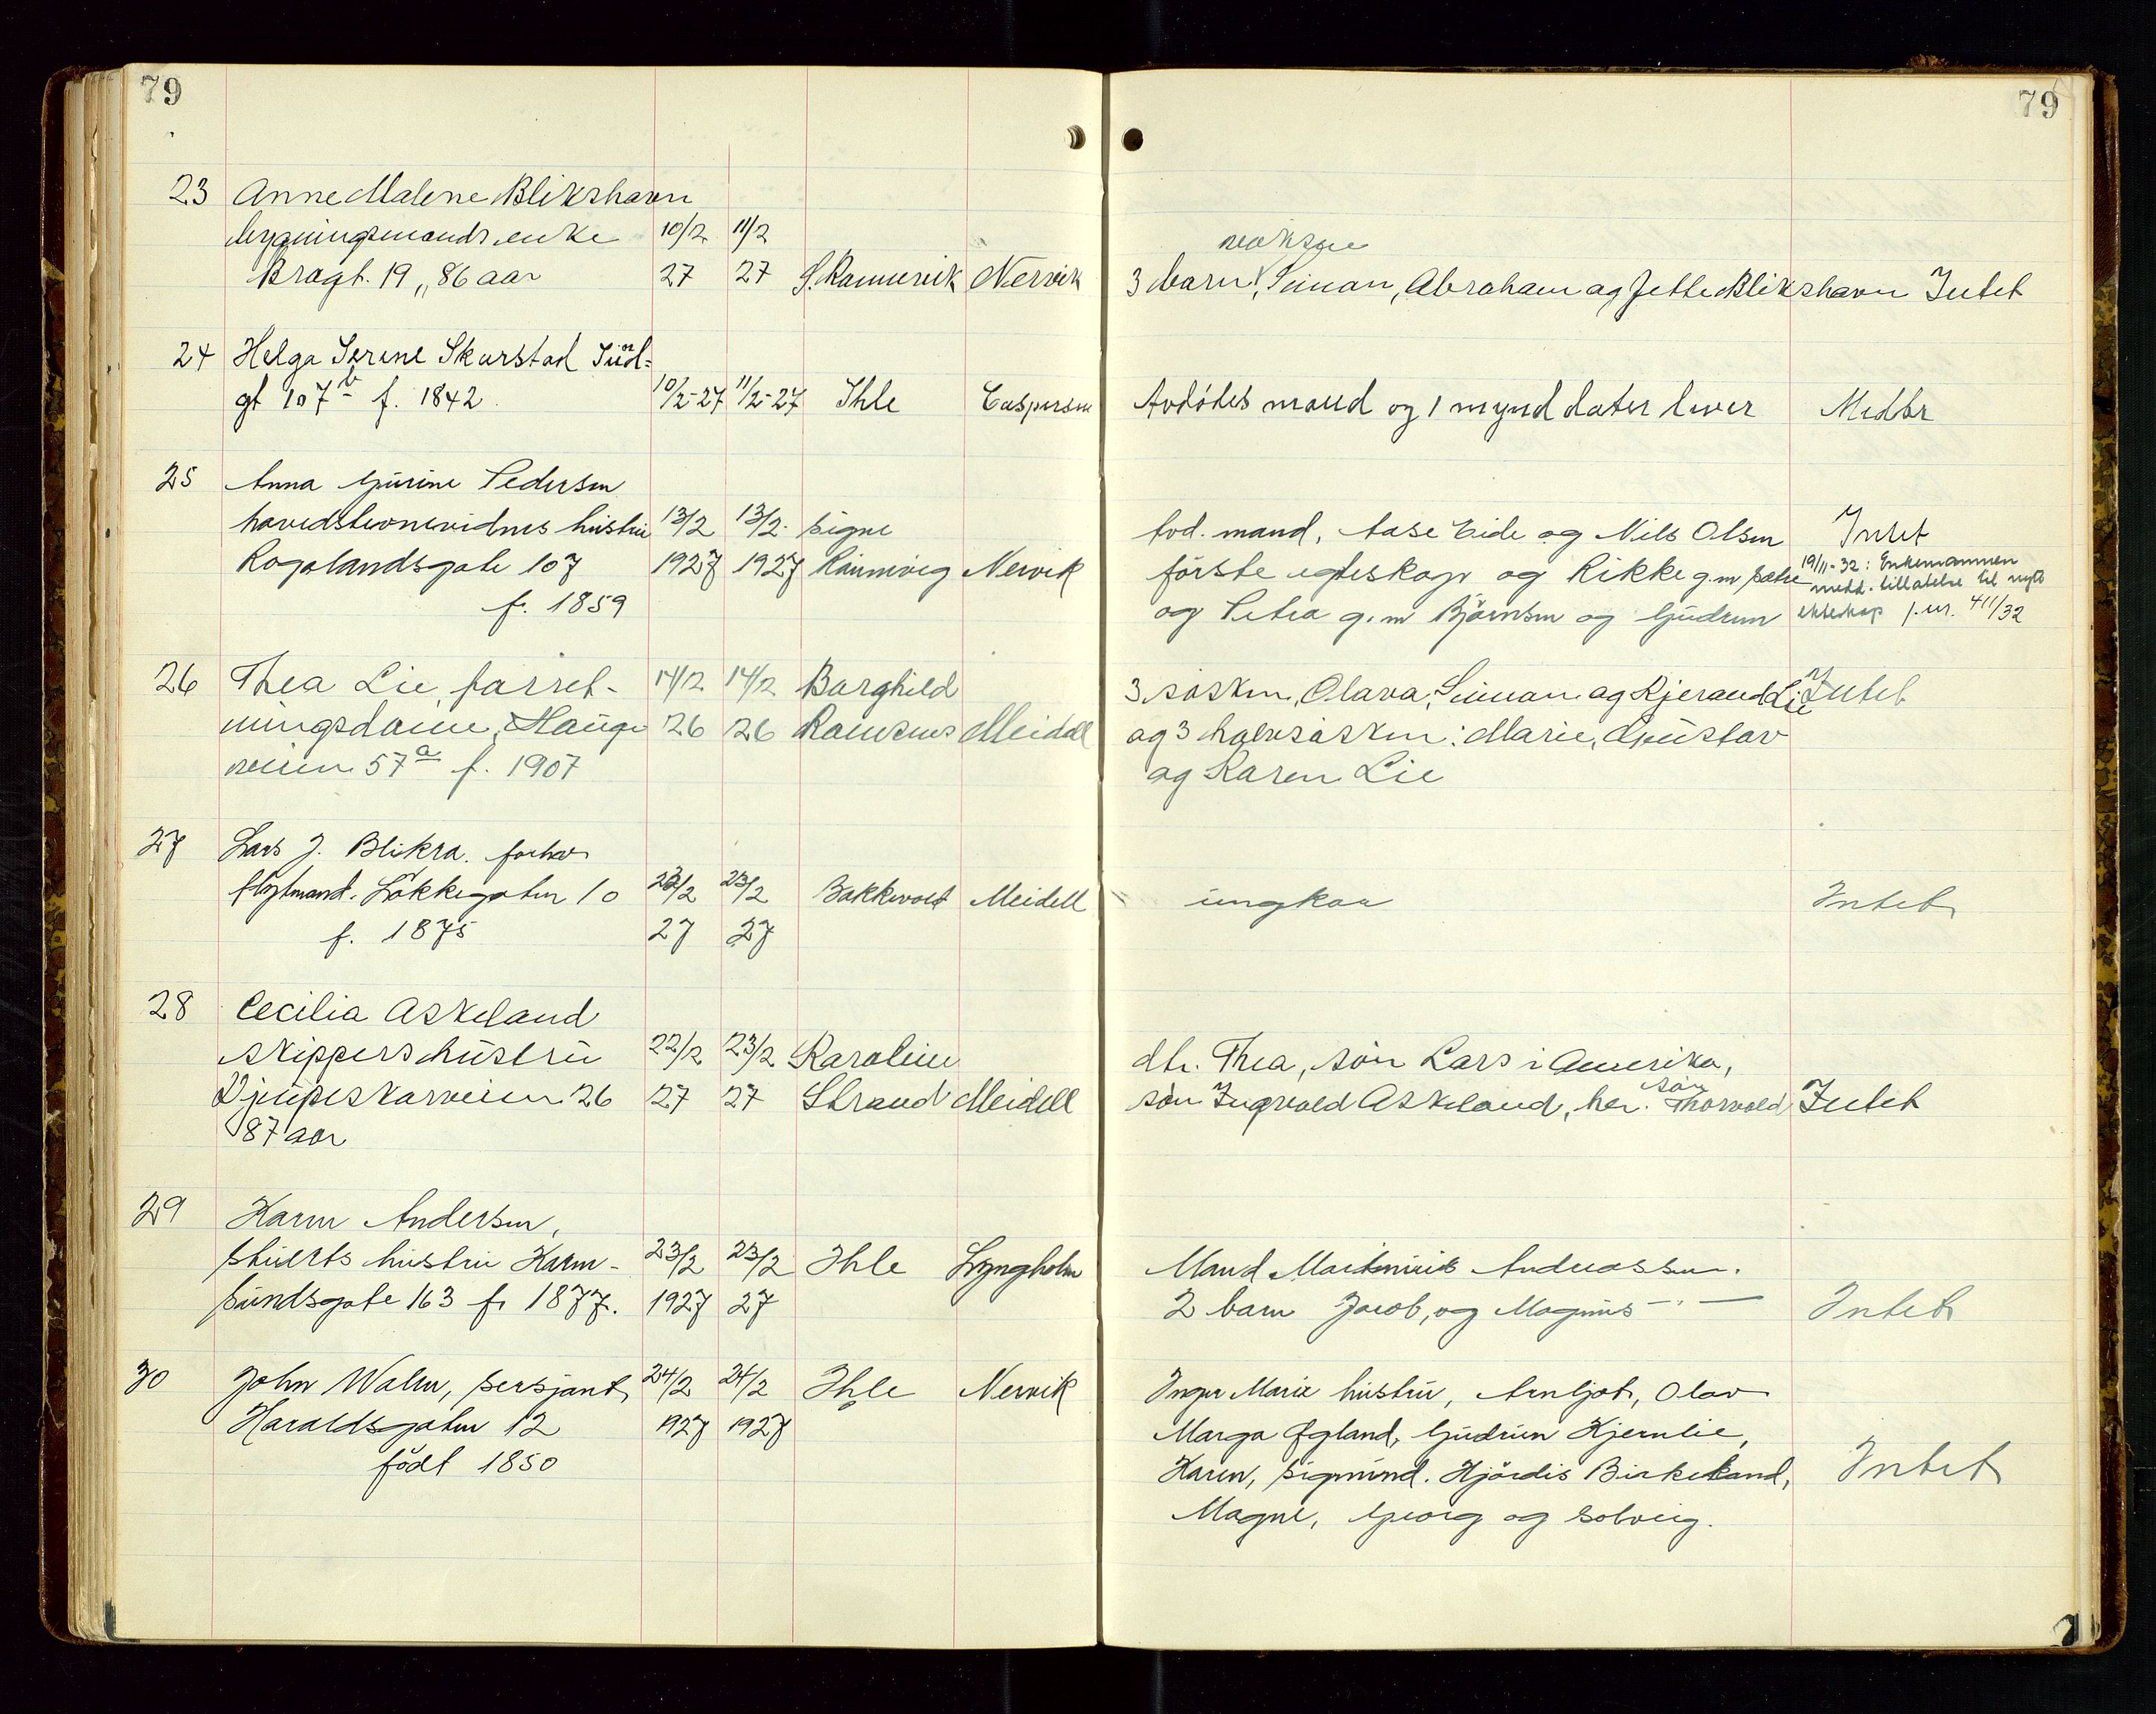 79
79
23 Anne Malene Blikshavn
bygningsmands enke 10/2 11/2
Bragt. 19, 86 aar 27 27 S. Rannevik Nervik
voksne
3 barn, Simon, Abraham og Jette Blikshavn Intet
24 Helga Serine Skarstad
gt 107 b f. 1842 10/2-27 11/2-27 Ihle Caspersen
Avdødes mand og 1 mynd dater lever Medbr
25 Anna Gurine Pedersen
hovedstevnevidnes hustru 13/2 13/2 Signe
Rogalandsgate 107 1927 1927 Nervik
f. 1859
avd. mand, Aase Eide og Nils Olsen Intet
første egteskap og Rikke g.m Sætre
og Petra g.m Bjørnsen og Gudrun
19/11-32: Enkemannen
medd. tillatelse til nytt
ekteskap j.nr. 411/32
26 Thea Lie, forret- 14/2 14/2 Borghild
ningsdame, Hauge 26 26 Ramsnes Meidell
veien 57 a f. 1907
3 søsken, Olava, Simon og Kjerand Lie Intet
og 3 halvsøsken: Marie, Gustav
og Karen Lie
27 Lars J. Blikra. forhv
flytmand. Løkkegaten 10 22/2 23/2 Bakkevold Meidell
f. 1875 27 27
ungkar Intet
28 Cecilia Askeland
skippers hustru 22/2 23/2 Karoline
Djupeskarveien 26 27 27 Strand Meidell
87 aar
dtr. Thea, søn Lars i Amerika,
søn
søn Ingvald Askeland, her. Thorvald Intet
29 Karen Andersen,
stuerts hustru Karm- 23/2 23/2 Ihle Lyngholm
sundsgate 163 f. 1877. 1927 27
Mand Martinius Andreassen.
2 barn Jacob, og Magnus —"— Intet
30 John Walen, sersjant, 24/2 24/2 Ihle Nervik
Haraldsgaten 12 1927 1927
født 1850
Inger Marie hustru, Arnljot, Olav
Marga Øgland, Gudrun Kjernlie,
Karen, Sigmund. Hjørdis Birkeland, Intet
Magne, Georg og Solveig.